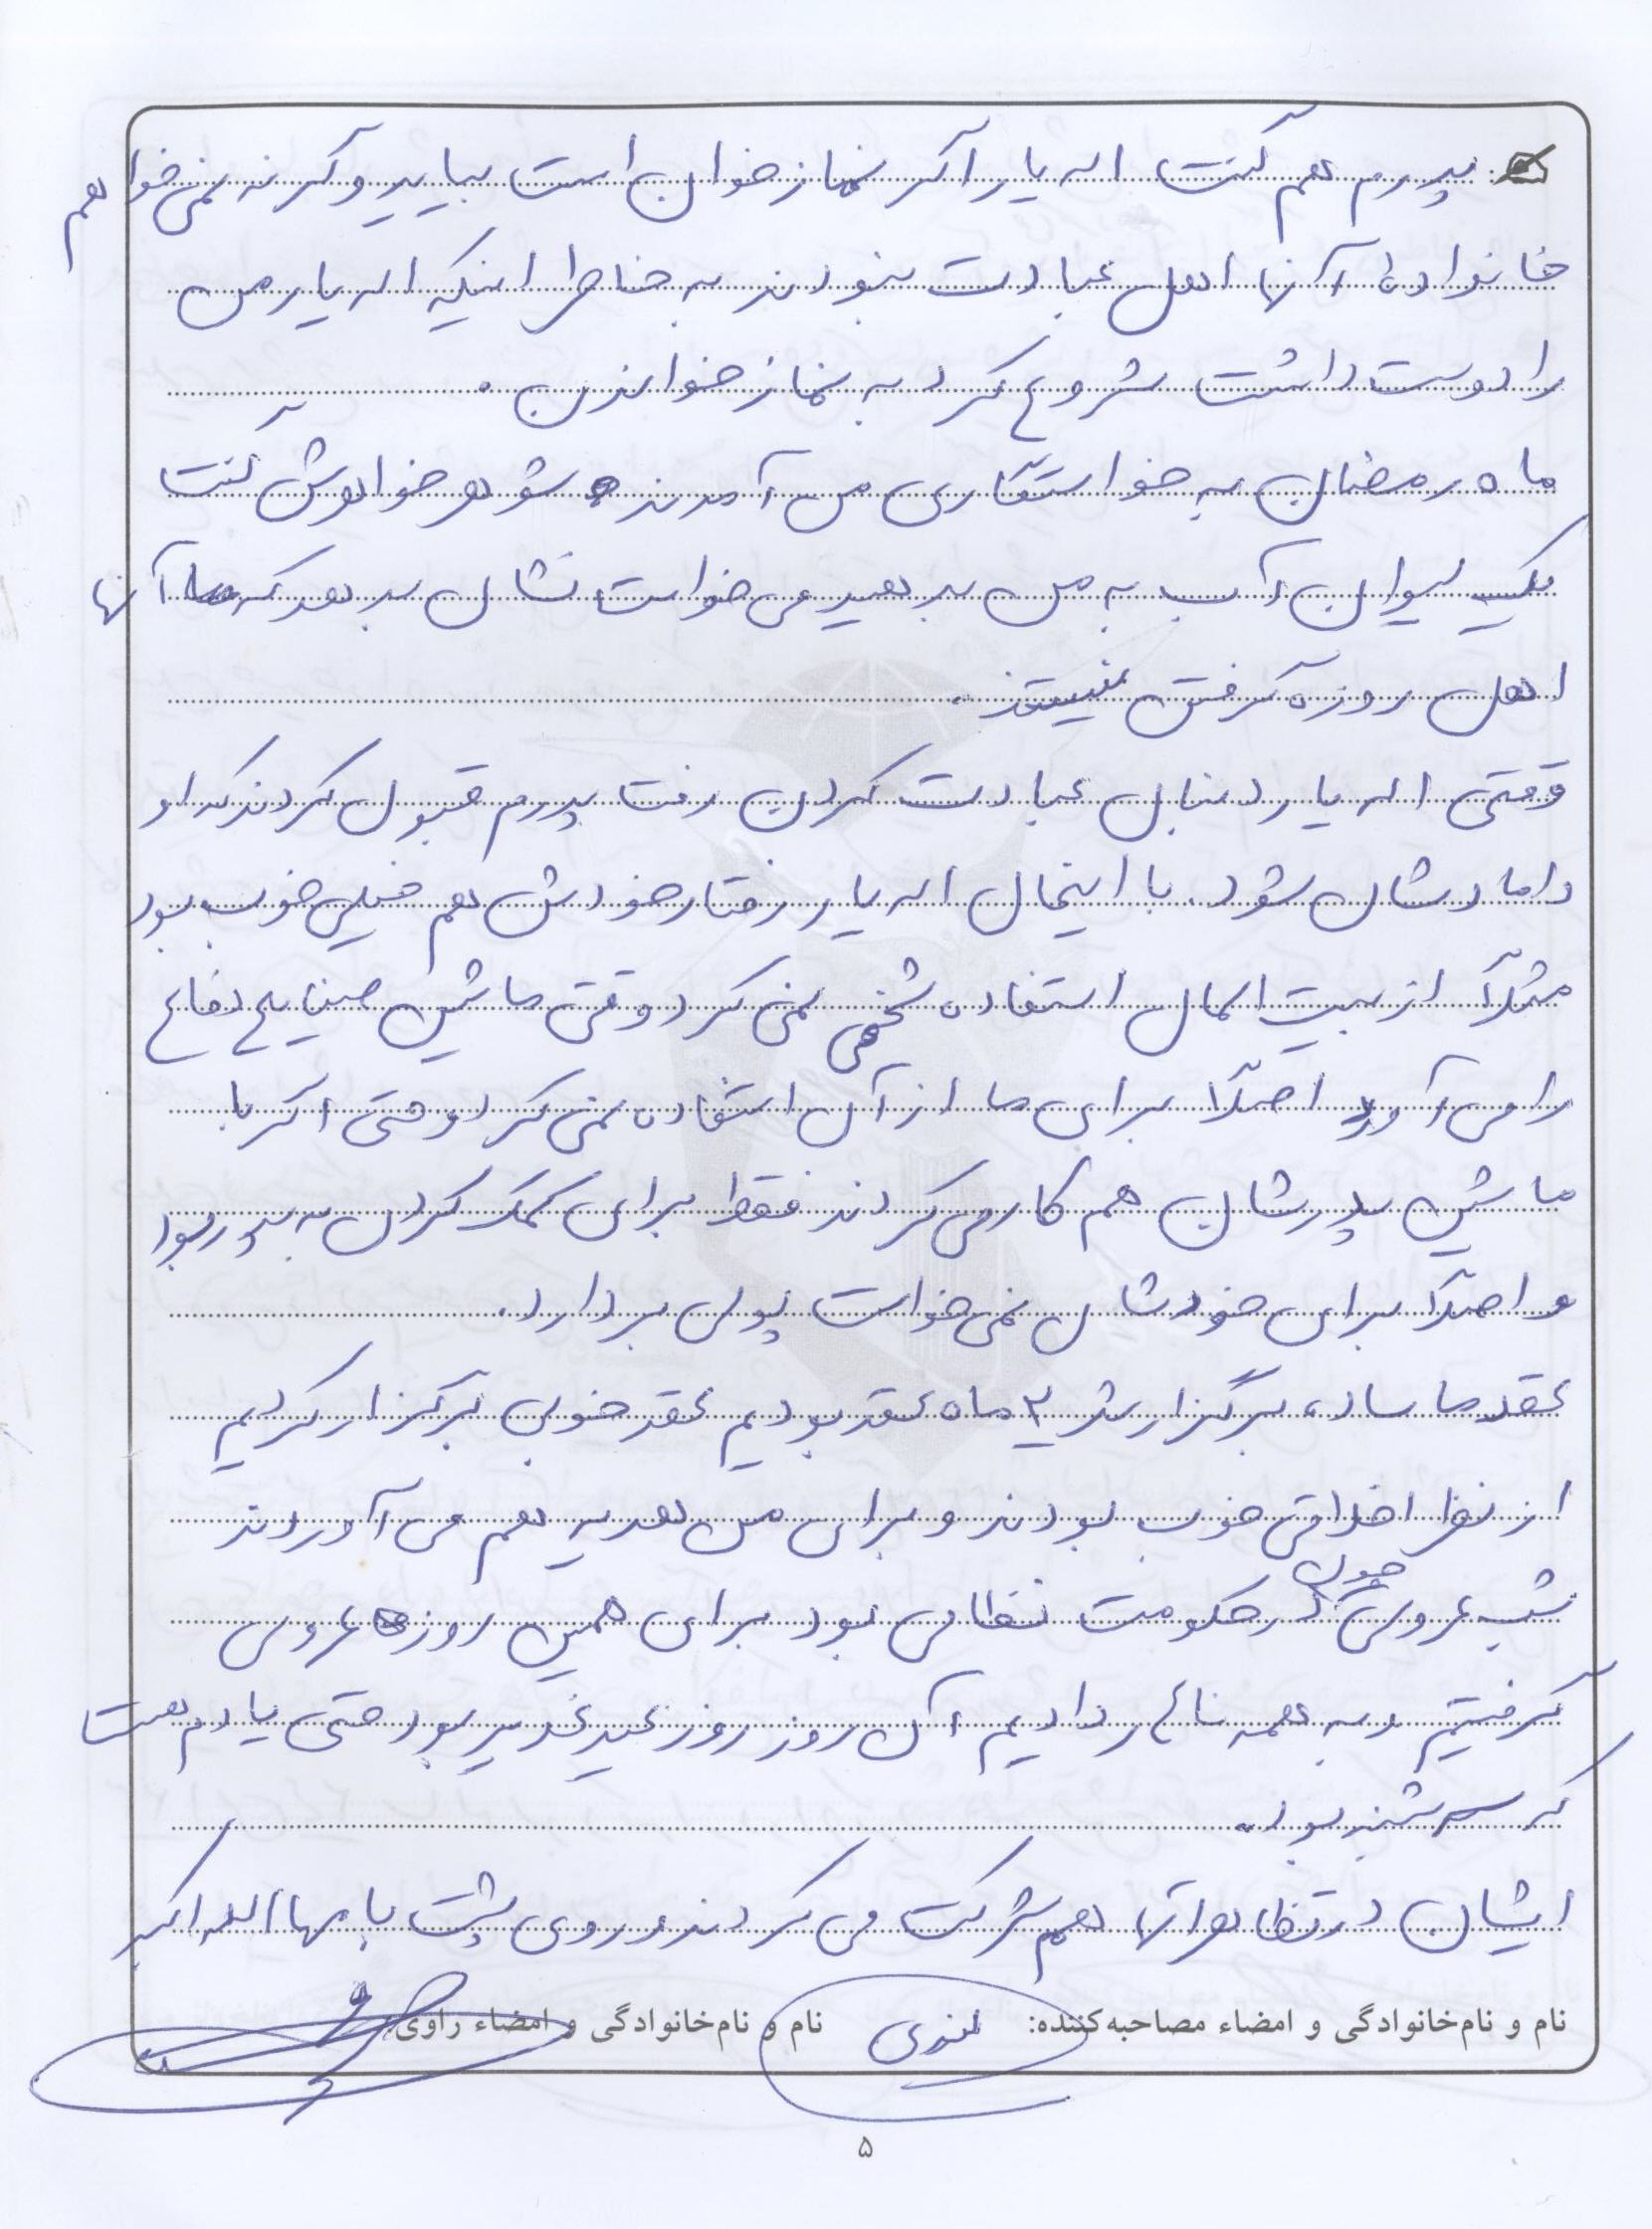 پدرم هم گفت اله یار اگر نماز خوان است بیاید وگرنه نمی خواهم
خانواده آنها اهل عبادت نبودند به خاطر اینکه اله یار من
را دوست داشت شروع کرد به نماز خواندن .
ماه رمضان به خواستگاری من آمدند شوهر خواهرش گفت
یک لیوان آب به من بدهید می خواست نشان بدهد که آنها
اهل روزه گرفتن نیستند .
وقتی اله یار دنبال عبادت کردن رفت پدرم قبول کردند که او
دامادشان شود . با اینحال اله یار رفتار خودش هم خیلی خوب بود
مثلاً از بیت المال استفاده شخصی نمی کرد وقتی ماشین صنایع دفاع
را می آورد اصلاً برای ما از آن استفاده نمی کرد و حتی اگر با
ماشین پدرشان هم کار می کردند فقط برای کمک کردن به پدر بود
و اصلاً برای خودشان نمی خواست پولی بردارد .
عقد ما ساده برگزار شد ۲ ماه عقد بودیم عقد خوبی برگزار کردیم
از نظر اخلاقی خوب بودند و برای من هدیه هم می آوردند
شب عروسی چون در حکومت نظامی بود برای همین روز عروسی
گرفتیم و به همه ناهار دادیم آن روز روز عید غدیر بود حتی یادم هست
که سه شنبه بود .
ایشان در تظاهراتها هم شرکت می کردند و روی پشت بامها الله اکبر
نام و نام‌خانوادگی و امضاء مصاحبه‌کننده: نام و نام‌خانوادگی و امضاء راوی:
۵